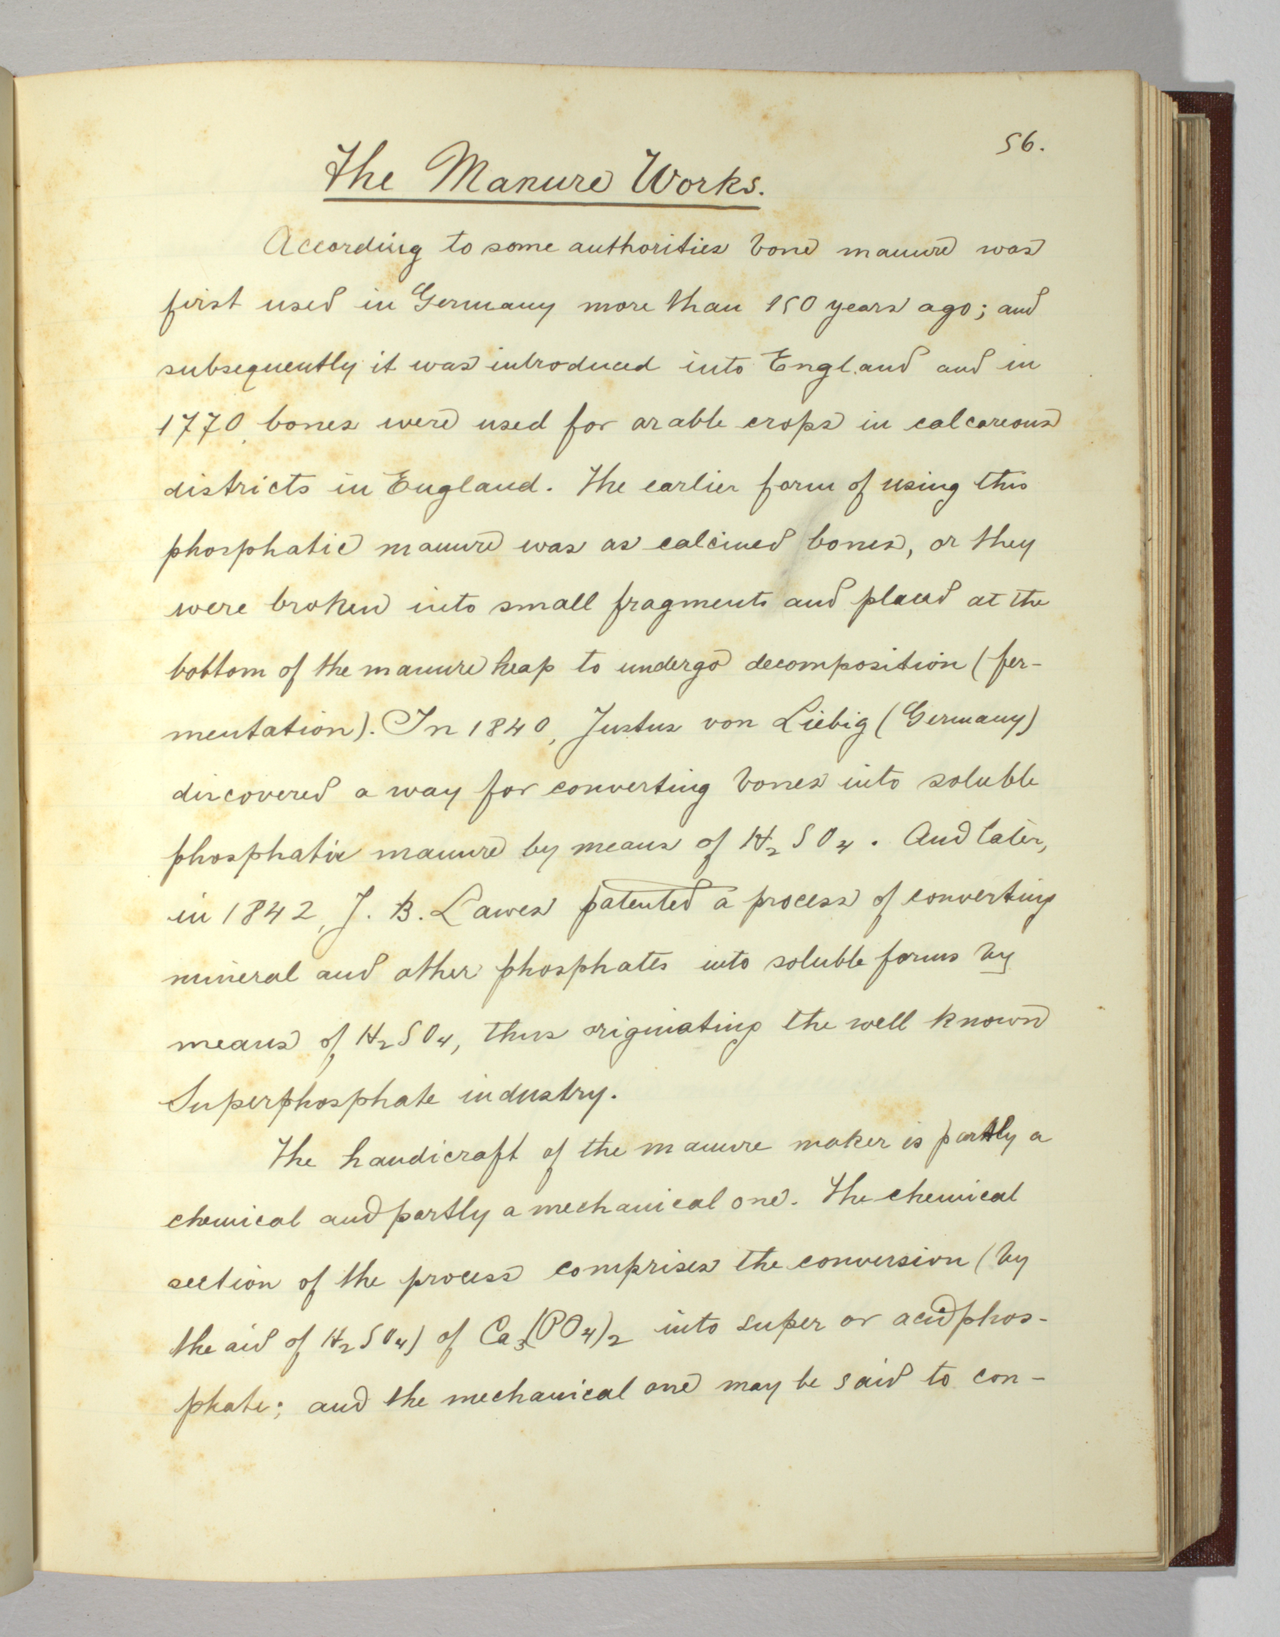 56.
The Manure Works.
According to some authorities bone manure was
first used in Germany more than 150 years ago; and
subsequently it was introduced into England and in
1770, bones were used for arable crops in calcareous
districts in England. The earlier form of using this
phosphatic manure was as calcined bones, or they
were broken into small fragments and placed at the
bottom of the manure heap to undergo decomposition (fer-
mentation). In 1840, Justus von Liebig (Germany)
discovered a way for converting bones into soluble
phosphatic manure by means of H₂SO₄. And later,
in 1842, J. B. Lawes patented a process of converting
mineral and other phosphates into soluble forms by
means of H₂SO₄, thus originating the well known
Superphosphate industry.
The handicraft of the manure maker is partly a
chemical and partly a mechanical one. The chemical
section of the process comprises the conversion (by
the aid of H₂SO₄) of Ca₃(PO₄)₂ into super or acid phos-
phate; and the mechanical one may be said to con-